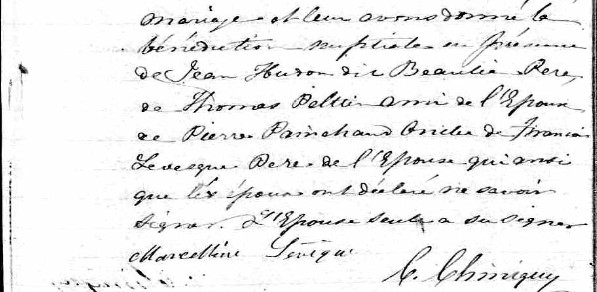 mariage et leur avons donné la
bénédiction nuptiale en présence
de Jean Hudon dit Beaulie Pere,
de Thomas Peltier ami de l'Epoux
de Pierre Painchaud Oncle de Francois
Levesque Pere de l'Epouse qui ainsi
que l'époux ont déclaré ne savoir
signer. L'Epouse seule a su signer
Marcelline Lévèque
C. Chiniquy